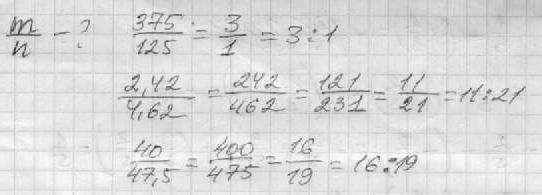 m/n - ? 375/125 = 3/1 = 3:1
2,42/4,62 = 242/462 = 121/231 = 11/21 = 11:21
40/47,5 = 400/475 = 16/19 = 16:19